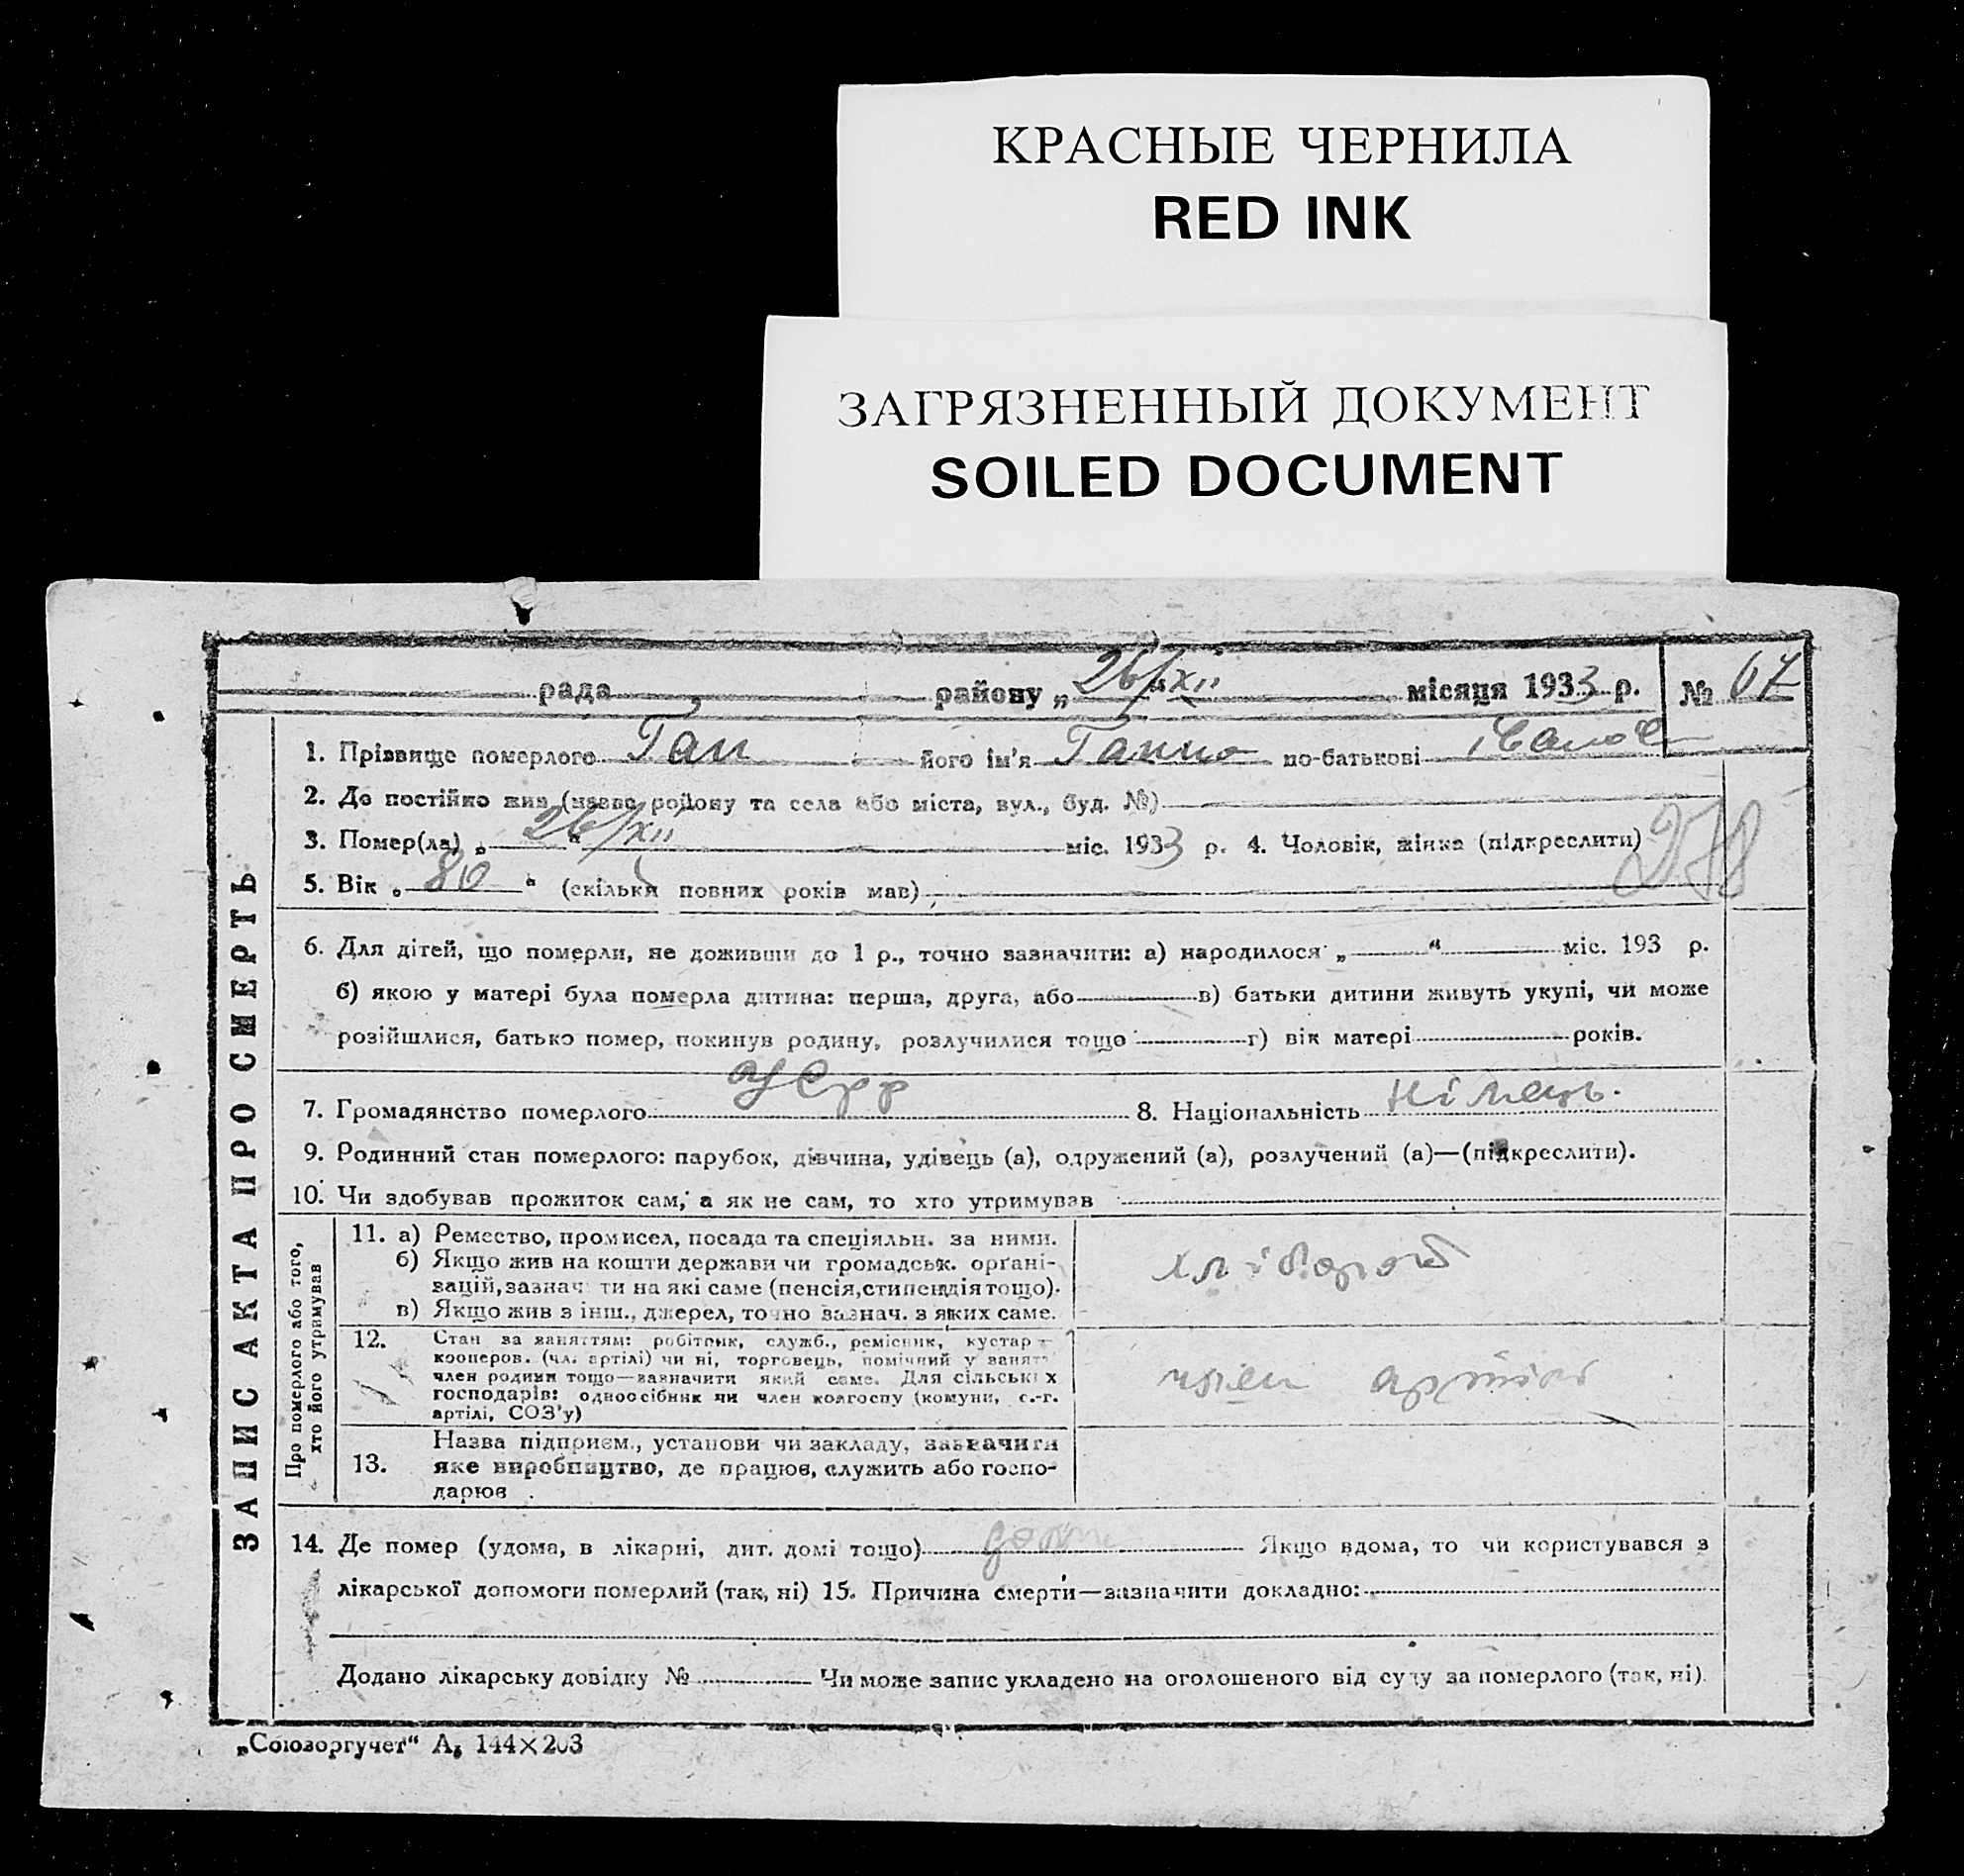 КРАСНЫЕ ЧЕРНИЛА
RED INK
ЗАГРЯЗНЕННЫЙ ДОКУМЕНТ
SOILED DOCUMENT
рада району „26/XII“ місяця 1933 р. № 67
ЗАПИС АКТА ПРО СМЕРТЬ
1. Прізвище померлого Ган його ім'я Ганна по-батькові
2. Де постійно жив (назва району та села або міста, вул., буд. №)
3. Помер(ла) „26/XII“ міс. 1933 р. 4. Чоловік, жінка (підкреслити)
5. Вік „80“ (скільки повних років мав)
6. Для дітей, що померли, не доживши до 1 р., точно зазначити: а) народилося „ “ міс. 193 р.
б) якою у матері була померла дитина: перша, друга, або в) батьки дитини живуть укупі, чи може
розійшлися, батько помер, покинув родину, розлучилися тощо г) вік матері років.
7. Громадянство померлого УСРР 8. Національність німець.
9. Родинний стан померлого: парубок, дівчина, удівець (а), одружений (а), розлучений (а)—(підкреслити).
10. Чи здобував прожиток сам, а як не сам, то хто утримував
Про померлого або того,
хто його утримував
11. а) Ремество, промисел, посада та спеціяльн. за ними.
б) Якщо жив на кошти держави чи громадськ. орґані-
зацій, зазнач ти на які саме (пенсія, стипендія тощо).
в) Якщо жив з інш., джерел, точно зазнач. з яких саме.
хлібороб
12. Стан за заняттям: робітник, служб., ремісник, кустар
кооперов. (чл. артілі) чи ні, торговець, помічний у занятт
член родини тощо—зазначити який саме. Для сільськ х
господарів: одноосібник чи член колгоспу (комуни, с.-г.
артілі, СОЗ'у)
член артілі
13. Назва підприєм., установи чи закладу, зазначити
яке виробництво, де працює, служить або госпо-
дарює
14. Де помер (удома, в лікарні, дит. домі тощо) Якщо вдома, то чи користувався з
лікарської допомоги померлий (так, ні) 15. Причина смерти—зазначити докладно:
Додано лікарську довідку № Чи може запис укладено на оголошеного від суду за померлого (так, ні).
„Союзоргучет“ А₅ 144×203